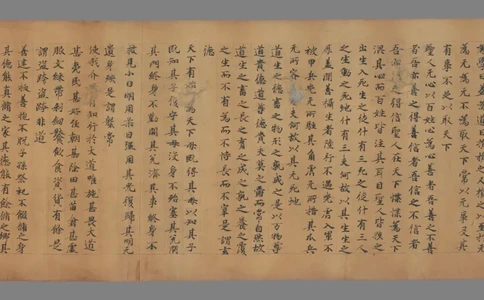 无為无不為取天下常以无事及其
有事不足以取天下
聖人无心以百姓心為心善者吾善之不善
者吾亦善之得善信者吾信之不信者
吾亦信之得信聖人在天下惵惵為天下
渾其心而百姓皆注其耳目聖人皆孩之
出生入死生之徒什有三死之徒什有三人
之生動之死地什有三夫何故以其生生之
厚蓋聞善攝生者陸行不遇兕虎入軍不
被甲兵兕无所駐其角虎无所措其爪兵
无所容其刃夫何故以其无死地
道生之德畜之物形之勢成之是以萬物尊
道貴德道尊德貴夫莫之爵而常自然故
道生之畜之長之育之成之孰之養之覆
之生而不有為而不恃長而不宰是謂玄
德
天下有始以為天下母既得其母以知其子
既知其子復守其母沒身不殆塞其兌閉
其門終身不勤開其兌濟其事終身不
救見小曰明用柔曰強用其光復歸其明无
遺身殃是謂襲常
使我介然有知行於大道唯施甚畏大道
甚夷民甚好徑朝甚除田甚苗倉甚虛
服文綵帶利劍饜飲食資貨有餘是
謂盜跨盜跨非道
善建不拔善抱不脫子孫祭祀不輟脩之身
其德能真脩之家其德能有餘脩之鄉其